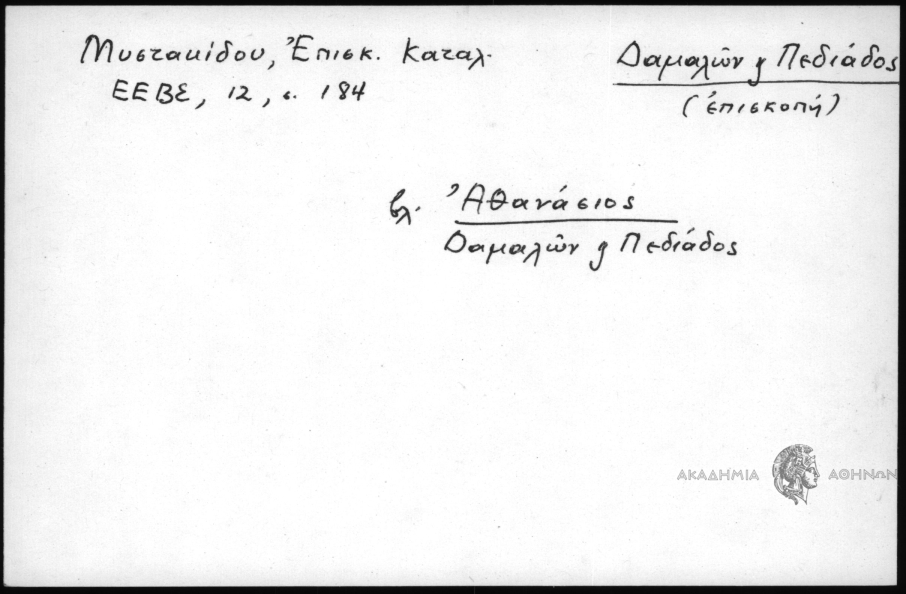 Μυστακίδου, Ἐπισκ. Καταλ.
ΕΕΒΣ, 12, σ. 184
Δαμαλῶν ϗ Πεδιάδος
(ἐπισκοπή)
βλ. Ἀθανάσιος
Δαμαλῶν ϗ Πεδιάδος
ΑΚΑΔΗΜΙΑ ΑΘΗΝΩΝ